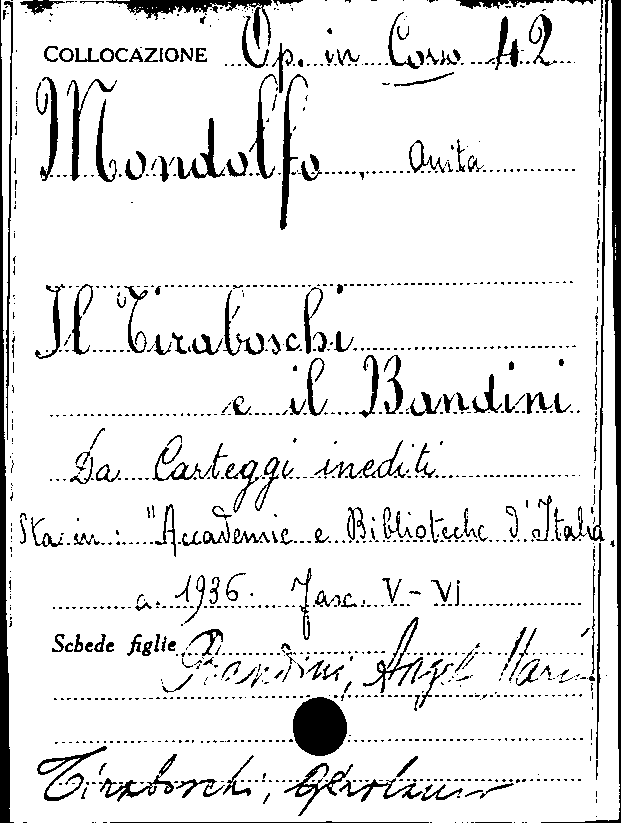 COLLOCAZIONE Op. in Corso 42
Mondolfo, Anita
Il Tiraboschi
e il Bandini
Da Carteggi inediti
Sta in: "Accademie e Biblioteche d'Italia.
a. 1936. Fasc. V-VI
Schede figlie Bandini, Angelo Maria
Tiraboschi, Girolamo